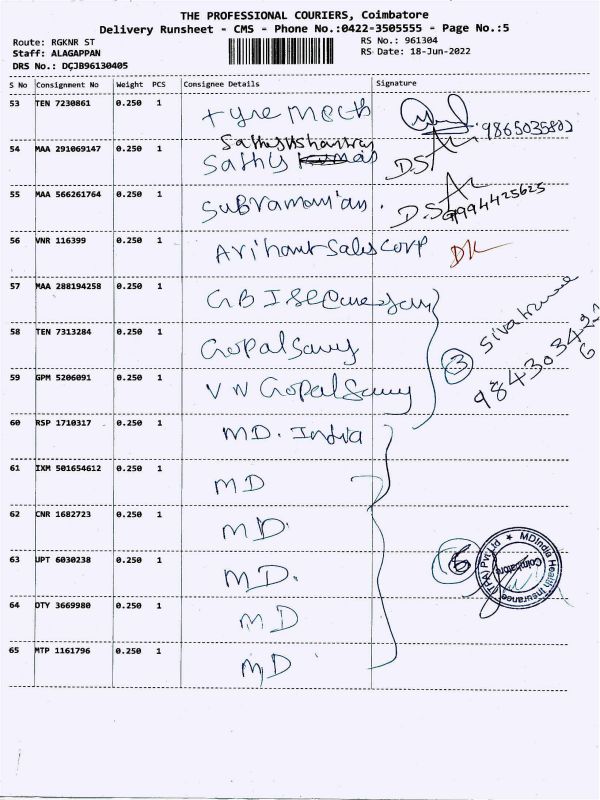 THE PROFESSIONAL COURIERS, Coimbatore
Delivery Runsheet - CMS - Phone No.:0422-3505555 - Page No.:5
Route: RGKNR ST
RS No.: 961304
Staff: ALAGAPPAN
RS Date: 18-Jun-2022
DRS No.: DCJB96130405
S No Consignment No Weight PCS Consignee Details Signature
53 TEN 7230861 0.250 1 9865035802
54 MAA 291069147 0.250 1 Sathy
55 MAA 566261764 0.250 1 Subramanian. 9994425625
56 VNR 116399 0.250 1 Arihant Sales corp
57 MAA 288194258 0.250 1 GBI
58 TEN 7313284 0.250 1 Gopalsamy 3
59 GPM 5206091 0.250 1 V N Gopalsamy
60 RSP 1710317 0.250 1 MD. India
61 IXM 501654612 0.250 1 MD
62 CNR 1682723 0.250 1 MD.
63 UPT 6030238 0.250 1 MD. 6 MDIndia Health Insurance (TPA) Pvt Ltd Coimbatore
64 OTY 3669980 0.250 1 MD
65 MTP 1161796 0.250 1 MD